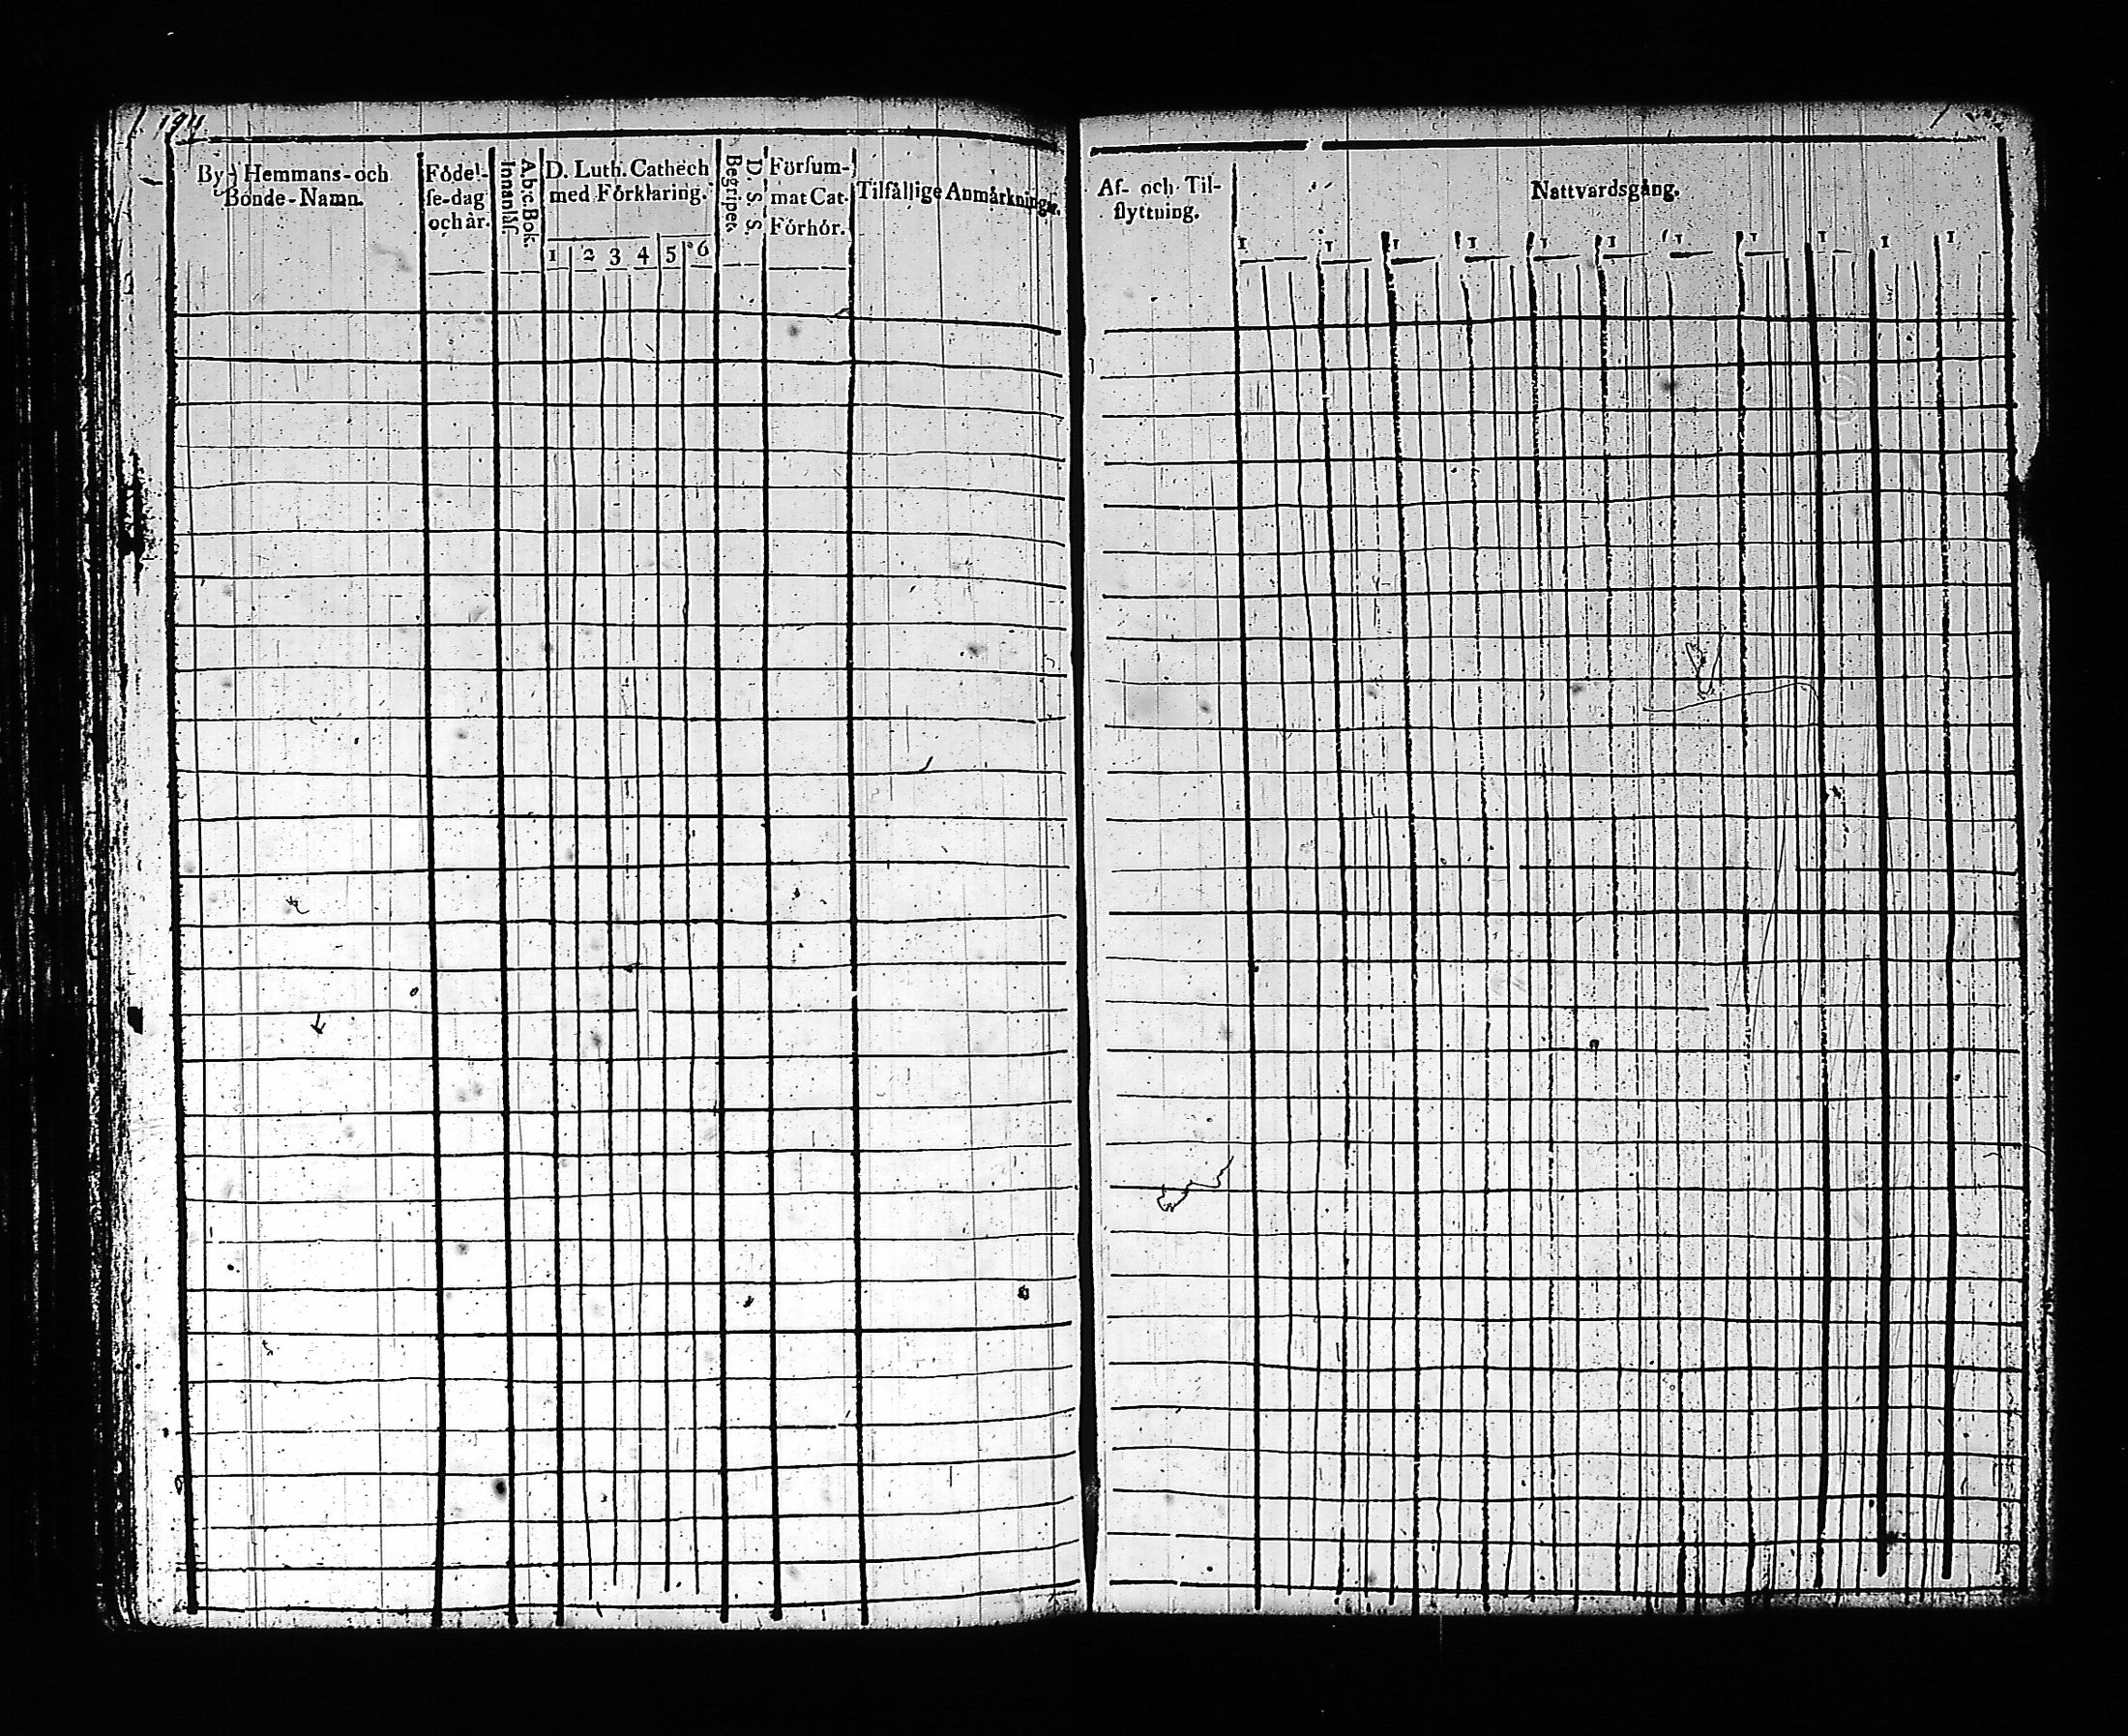 194
By- Hemmans- och
Bonde-Namn.
Födel-
se-dag
och år.
A b c Bok.
Innanläs.
D. Luth. Cathech
med Förklaring.
1 2 3 4 5 6
D. S. S.
Begriper.
Försum-
mat Cat.
Förhör.
Tilfällige Anmärkningar.
Af- och Til-
flyttning.
Nattvardsgång.
1 1 1 1 1 1 1 1 1 1 1